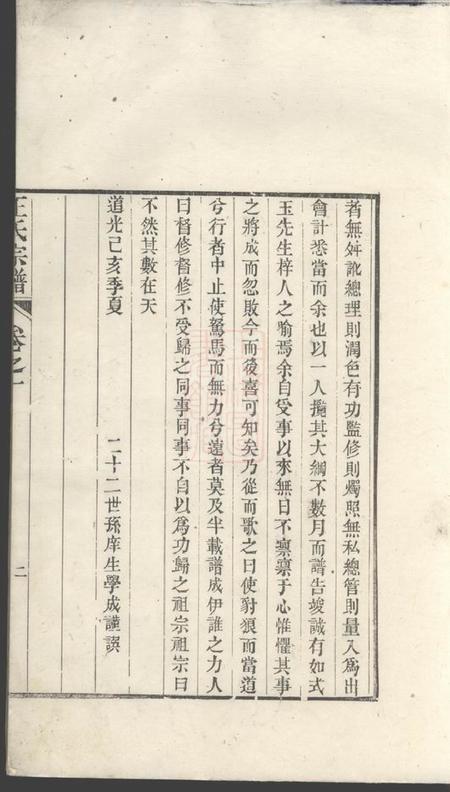 者無舛訛總理則潤色有功監修則燭照無私總管則量入爲出
會計悉當而余也以一人攬其大綱不數月而譜告竣誠有如式
玉先生梓人之喻焉余自受事以來無日不禀禀于心惟懼其事
之將成而忽敗今而後喜可知矣乃從而歌之曰使豺狼而當道
兮行者中止使駑馬而無力兮遠者莫及半載譜成伊誰之力人
曰督修督修不受歸之同事同事不自以爲功歸之祖宗祖宗曰
不然其數在天
道光己亥季夏
二十二世孫庠生學成謹譔
王氏宗譜
卷之一
二